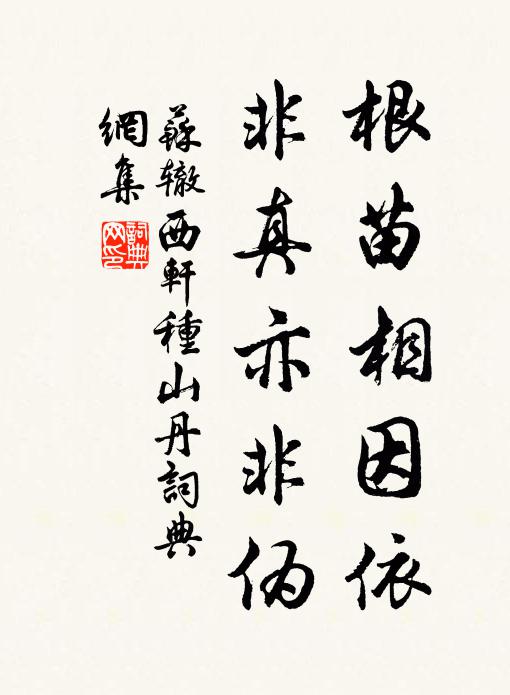 根苗相因依
非真亦非伪
蘇辙西軒種山丹詞典
網集
詞典
网印